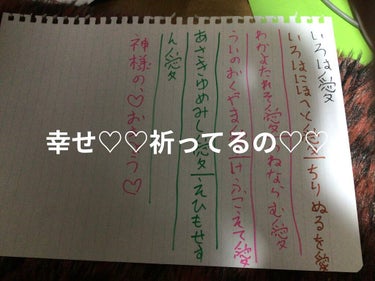 いろは愛
いろはにほへと ちりぬるを愛
わかよたれそ愛 ねならむ愛
ういのおくやま けふこえて愛
あさきゆめみし愛えひもせす
ん愛
神様の♡お う♡
幸せ♡♡祈ってるの♡♡